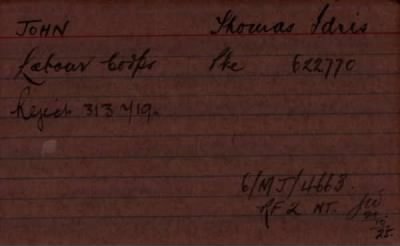 JOHN Thomas Idris
Labour Corps Pte 622770
Reject 313 4/19.
6/MJ/4663.
RF2 NT.
25.